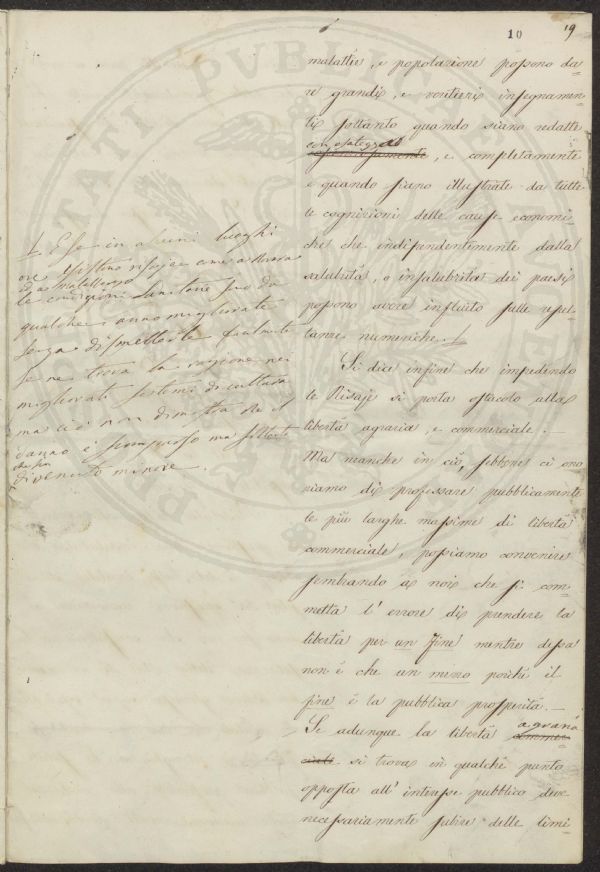 10 19
malattie, e popolazione possono da=
re grandi, e veritieri insegnamen=
ti soltanto quando siano redatte
, e completamente
e quando siano illustrate da tutte
le cognizioni delle cause economi=
che che indipendentemente dalla
salubrità, o insalubrità dei paesi
possono avere influito sulle resul=
tanze numeriche.
Si dice infine che impedendo
le Risaje si porta ostacolo alla
libertà agraria, e commerciale. —
Ma neanche in ciò, sebbene ci ono=
riamo di professare pubblicamente
le più larghe massime di libertà
commerciale, possiamo convenire
sembrando a noi che si com=
metta l'errore di prendere la
libertà per un fine mentre dessa
non è che un mezzo poiché il
fine è la pubblica prosperità. —
Se adunque la libertà agraria
commer=
ciale si trova in qualche punto
opposta all'interesse pubblico deve
necessariamente subire delle limi=
E se in alcuni luoghi
ove esistono risaje come a
ed a
le condizioni sanitarie sono da
qualche anno migliorate
senza
se ne trova la ragione nei
migliorati sistemi di cultura
ma ciò non dimostra che il
danno è ma
che sia
divenuto minore.